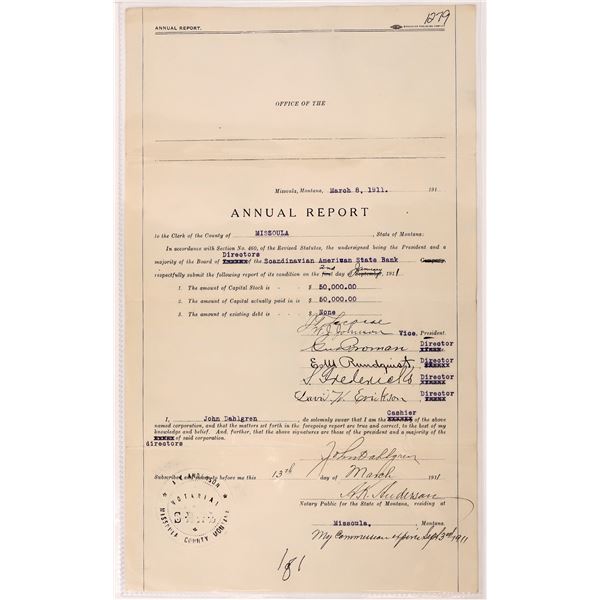 1279
ANNUAL REPORT.
OFFICE OF THE
Missoula, Montana, March 8, 1911. 191
ANNUAL REPORT
to the Clerk of the County of MISSOULA , State of Montana:
In accordance with Section No. 460, of the Revised Statutes, the undersigned being the President and a
Directors
majority of the Board of xxxxxx of the Scandinavian American State Bank Company,
2nd January
respectfully submit the following report of its condition on the first day 1911
1. The amount of Capital Stock is - - - $ 50,000.00
2. The amount of Capital actually paid in is - $ 50,000.00
3. The amount of existing debt is - - - $ None
Johnson Vice President.
Broman Director
E.M. Rundquist, Director
S. Fredericks Director
Erickson Director
Cashier
I, John Dahlgren do solemnly swear that I am the xxxxx of the above
named corporation, and that the matters set forth in the foregoing report are true and correct, to the best of my
knowledge and belief. And, further, that the above signatures are those of the president and a majority of the
xxxxx of said corporation.
directors
John Dahlgren
Subscribed and sworn to before me this 13th day of March 1911
H.K. Anderson
Notary Public for the State of Montana, residing at
Missoula, Montana.
My Commission expires Sept 3rd 1911
ANDERSON
NOTARIAL
MISSOULA COUNTY MONTANA
181